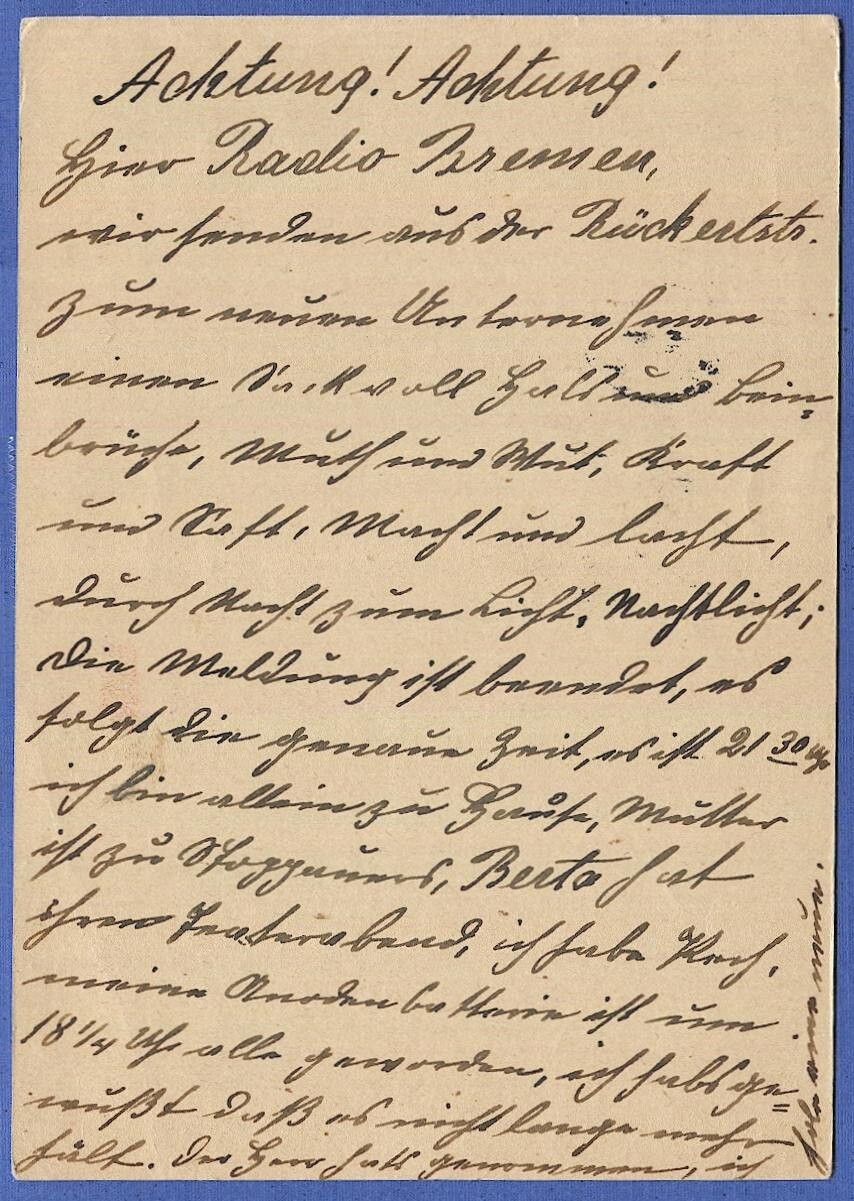 Achtung! Achtung!
Hier Radio Bremen,
wir senden aus der Rückertstr.
zum neuen Unternehmen
einen Sack voll Hals und Bein-
brüche, Muth und Wut, Kraft
und Saft, Macht und lacht,
durch Nacht zum Licht, Nachtlicht;
die Meldung ist beendet, es
folgt die genaue Zeit, es ist 21 30 Uhr
ich bin allein zu Hause, Mutter
ist zu Berta hat
ihren Teaterabend, ich habe Pech,
meine Anodenbatterie ist um
18 1/4 Uhr alle geworden, ich habs ge=
wußt daß es nicht lange mehr
hält. Der Herr hats genommen, ich
hole eine neue.